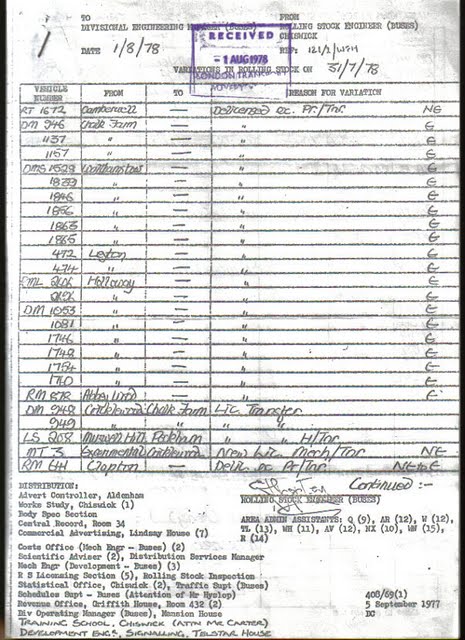 TO FROM
DIVISIONAL ENGINEERING MANAGER (BUSES) ROLLING STOCK ENGINEER (BUSES)
CHISWICK
DATE 1/8/78 REF: 121/2/
RECEIVED
- 1 AUG 1978
LONDON TRANSPORT
VARIATIONS IN ROLLING STOCK ON 31/7/78
VEHICLE NUMBER FROM TO REASON FOR VARIATION
RT 1672 Camberwell — Delicensed ex. Pr/Tnr NE
DM 946 Chalk Farm — " E
1137 " — " E
1157 " — " E
DMS 1528 Walthamstow — " E
" — " E
1846 " — " E
1856 " — " E
1863 " — " E
1865 " — " E
472 Leyton — " E
474 " — " E
RML Holloway — " E
" — " E
DM 1053 " — " E
1081 " — " E
1746 " — " E
1749 " — " E
1754 " — " E
" — " E
RM 878 Abbey Wood — " E
DM 948 Cricklewood Chalk Farm Lic Transfer
949 " " " "
LS 208 Muswell Hill Peckham " " H/Tnr
MT 3 Experimental Cricklewood New Lic Mech/Tnr NE
RM 641 Clapton — Delic ex Pr/Tnr NE to E
Continued :-
DISTRIBUTION:
Advert Controller, Aldenham
Works Study, Chiswick (1)
Body Spec Section
Central Record, Room 34
Commercial Advertising, Lindsay House (7)
ROLLING STOCK ENGINEER (BUSES)
AREA ADMIN ASSISTANTS: Q (9), AR (12), W (12),
TL (13), WH (11), AV (12), NX (10), WN (15),
R (14)
Costs Office (Mech Engr - Buses) (2)
Scientific Adviser (2), Distribution Services Manager
Mech Engr (Development - Buses) (3)
R S Licensing Section (5), Rolling Stock Inspection
Statistical Office, Chiswick (2), Traffic Supt (Buses)
Schedules Supt - Buses (Attention of Mr Hyslop) 408/69(1)
Revenue Office, Griffith House, Room 432 (2) 5 September 1977
Div Operating Manager (Buses), Mansion House DC
TRAINING SCHOOL. CHISWICK (ATTN MR CARTER)
DEVELOPMENT ENGS, SIGNALLING, TELSTAR HOUSE